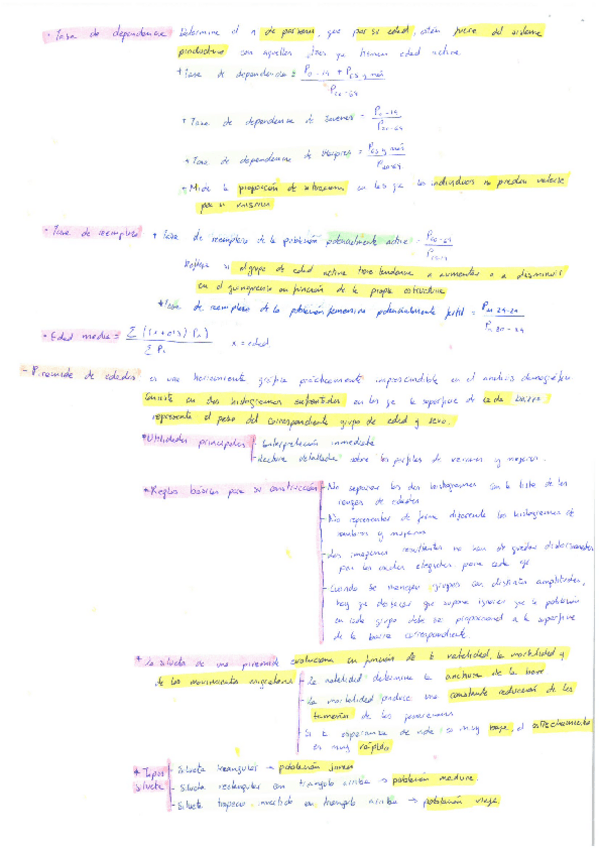 · Tasa de dependencia Determina el n de personas, que por su edad, están fuera del sistema
productivo con aquellos otros que tienen edad activa.
* Tasa de dependencia = P0-14 + P65 y más / P
* Tasa de dependencia de jóvenes = P / P
* Tasa de dependencia de = P65 y más / P
* Mide la proporción de situaciones en las que los individuos no pueden valerse
por sí mismos
· Tasa de reemplazo * Tasa de reemplazo de la población potencialmente activa = P60-64 / P
Refleja si el grupo de edad activa tiene tendencia a aumentar o a disminuir
en el quinquenio en función de la propia estructura
* Tasa de reemplazo de la población femenina potencialmente fértil = P / P
· Edad media = Σ ((x+0'5) Px) / Σ Px x = edad
- Pirámide de edades es una herramienta gráfica prácticamente imprescindible en el análisis demográfico
consiste en dos histogramas enfrentados en los que la superficie de cada barra
representa el peso del correspondiente grupo de edad y sexo.
* Utilidades principales - Interpretación inmediata
- Lectura detallada sobre los perfiles de varones y mujeres.
* Reglas básicas para su construcción - No separar los dos histogramas con la lista de los
rangos de edades
- No representar de forma diferente los histogramas de
hombres y mujeres
- Las imágenes resultantes no han de quedar distorsionadas
por las escalas elegidas para cada eje
- Cuando se manejan grupos con distintas amplitudes,
hay que que supone ignorar que la población
en cada grupo debe ser proporcional a la superficie
de la barra correspondiente.
* La silueta de una pirámide evoluciona en función de la natalidad, la mortalidad y
de los movimientos migratorios - La natalidad determina la anchura de la base
- La mortalidad produce una constante reducción de los
tamaños de las generaciones
Si la esperanza de vida es muy baja, el estrechamiento
es muy rápido
* Tipos silueta - Silueta triangular → población joven
- Silueta rectangular con triángulo arriba → población madura.
- Silueta trapecio invertido con triángulo arriba → población vieja.